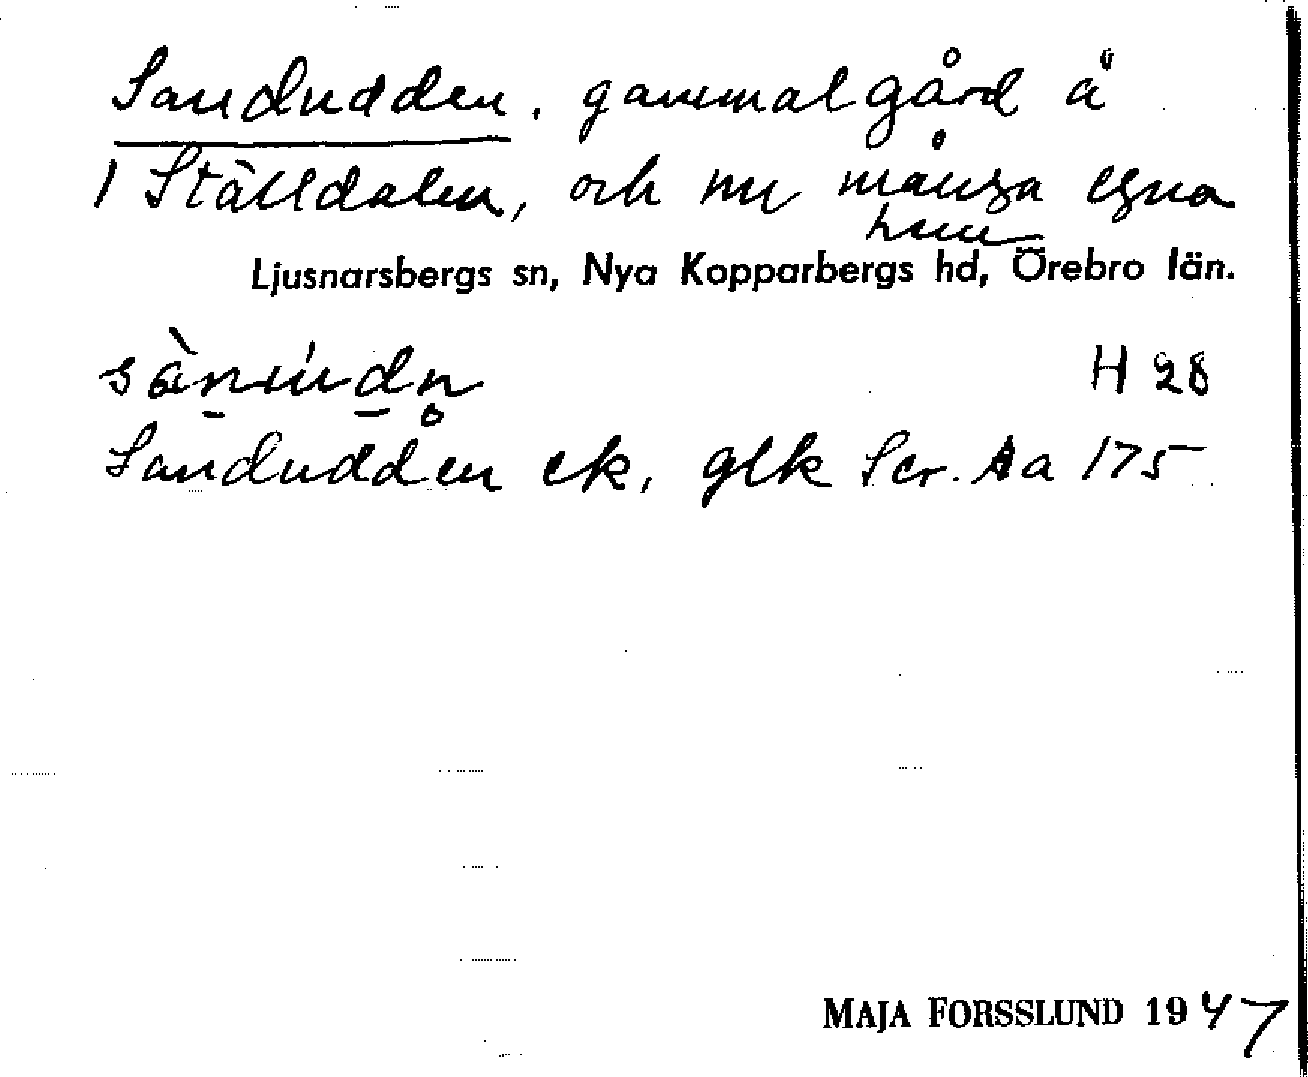 Sandudden, gammal gård å
1 Ställdalen, och nu många egna
hem
Ljusnarsbergs sn, Nya Kopparbergs hd, Örebro län.
H 28
Sandudden ek, glk Scr. Aa 175
MAJA FORSSLUND 1947